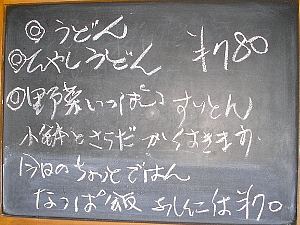 ◎うどん
◎ひやしうどん ¥780
◎野菜いっぱいすいとん
小鉢とさらだがつきます
今日のちょっとごはん
なっぱ飯 おしんこ ¥170